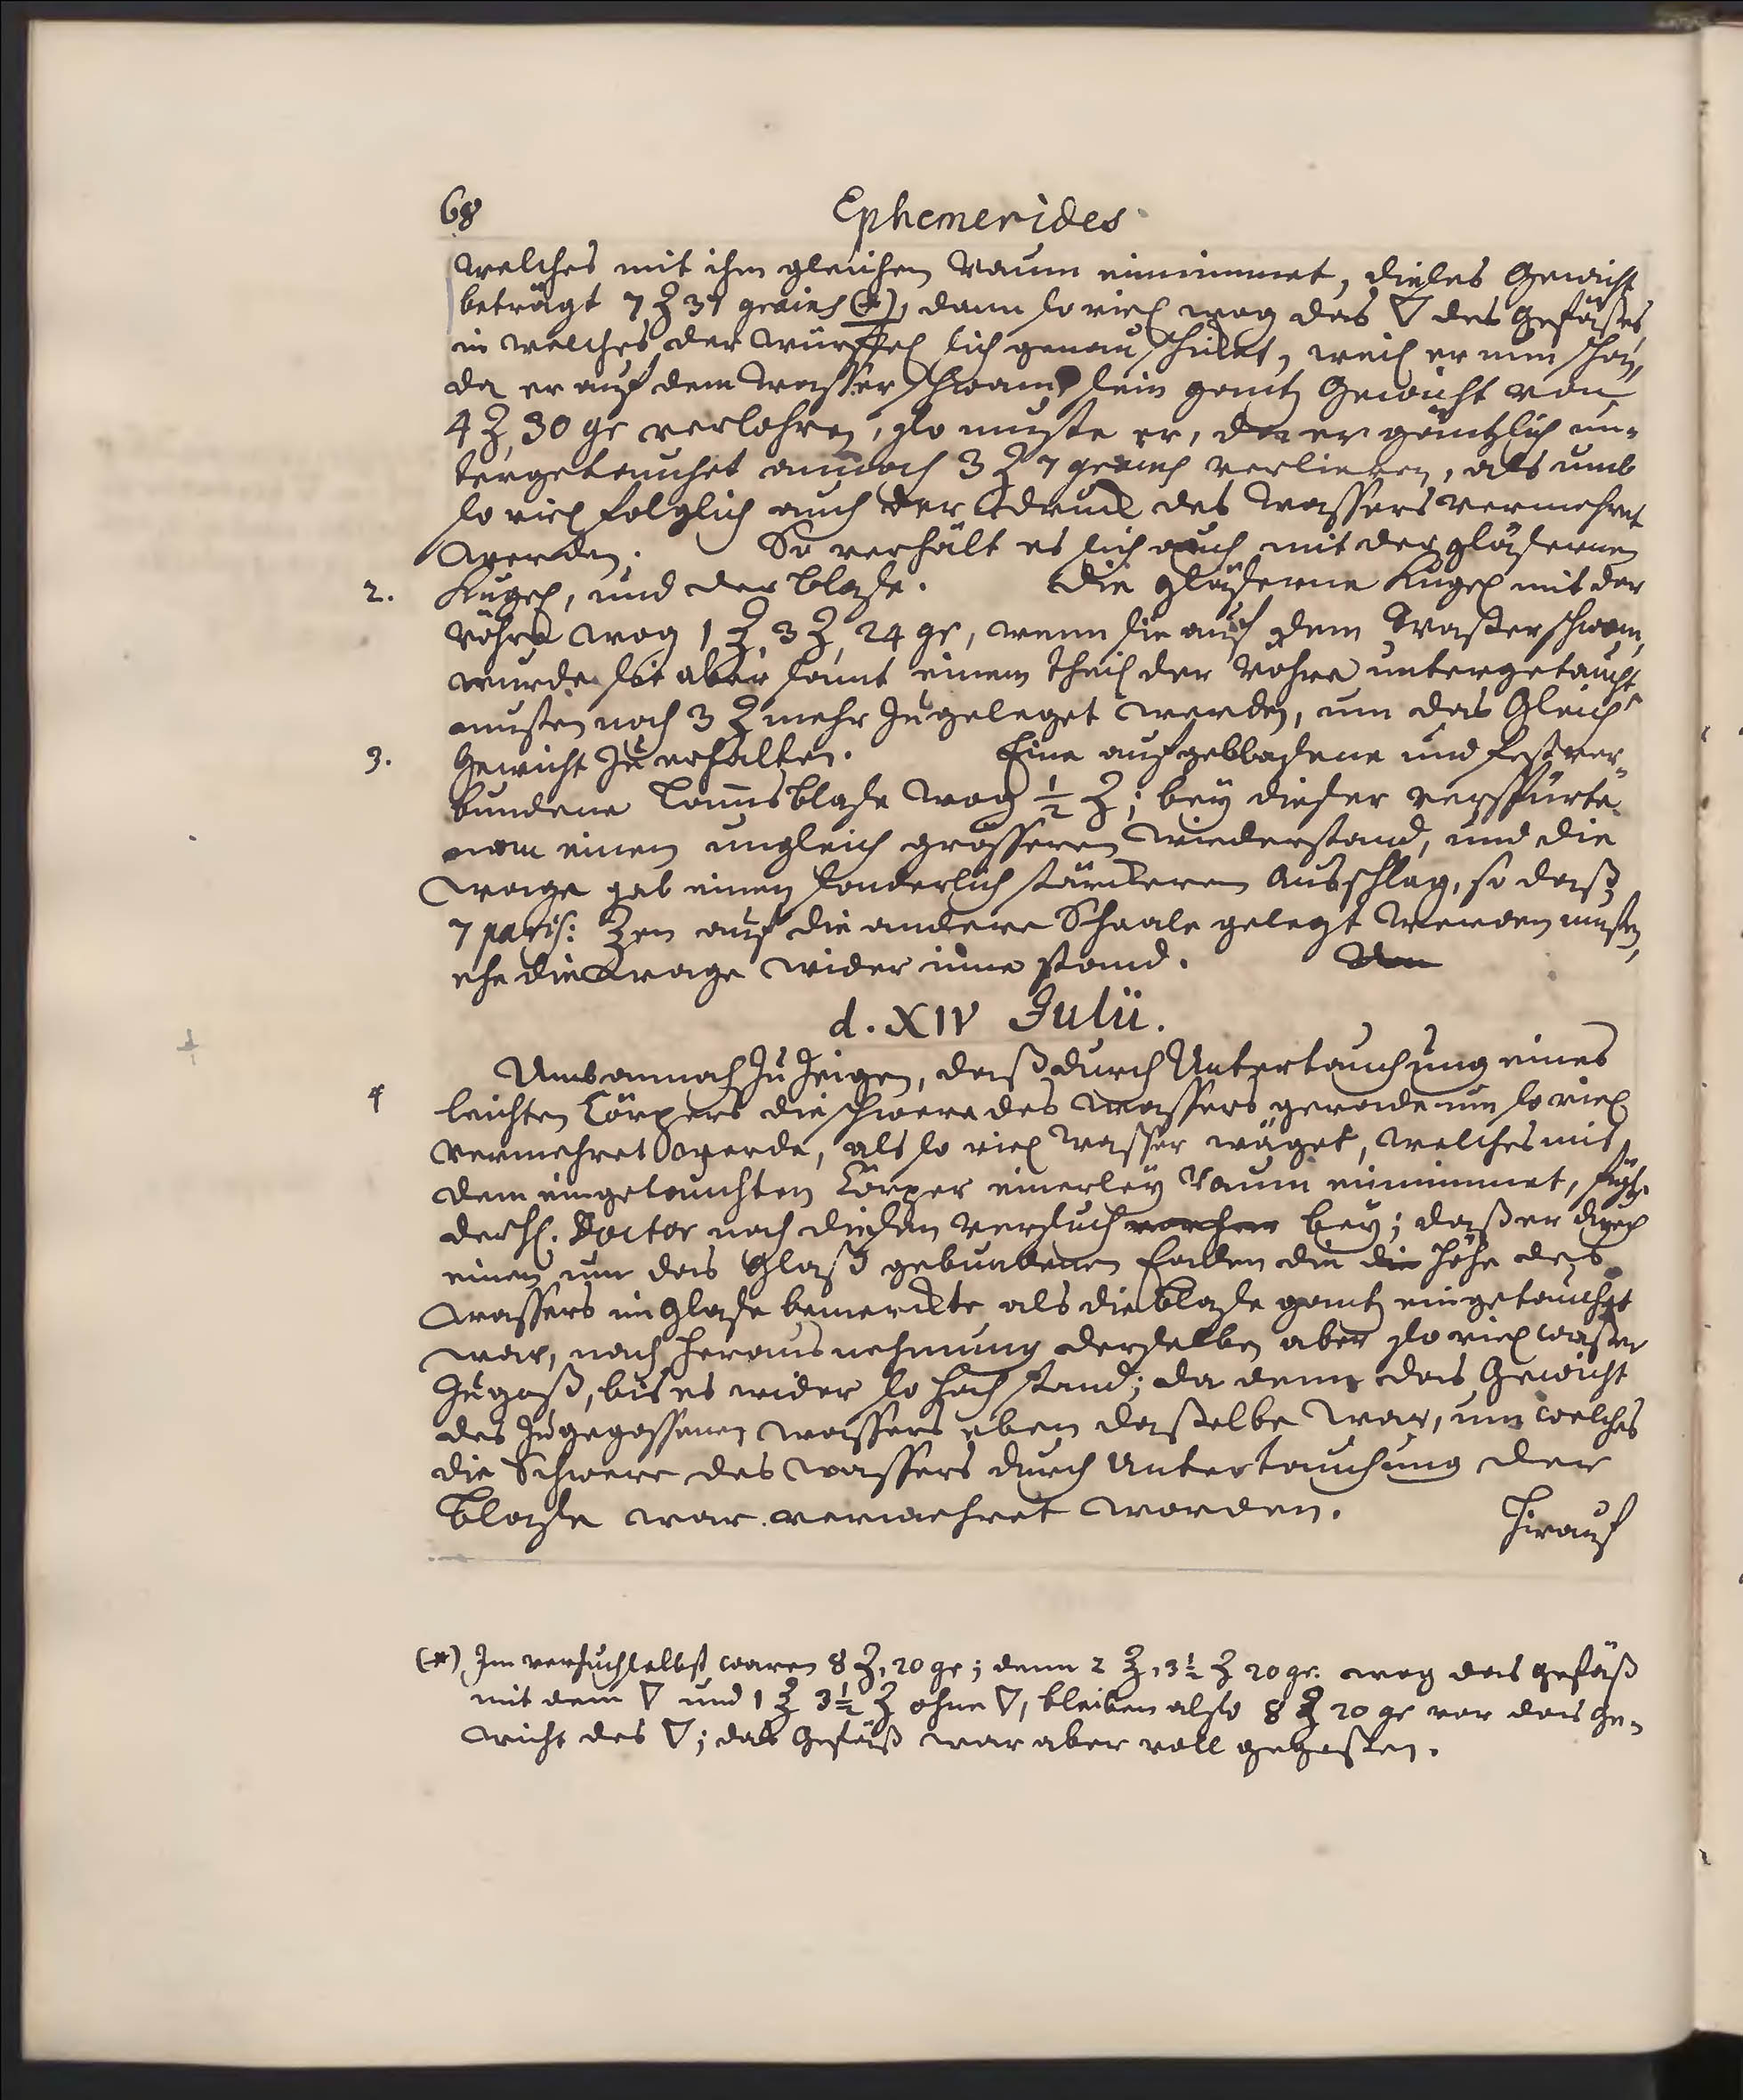 68 Ephemerides
welches mit ihm gleichen Raum einnimmet, dieses Gewicht
beträgt 7 ʒ 37 grains (*), dann so viel wog das 🜄 des Gefäßes,
in welches der Würffel sich genau schicket, weil er nun schon,
da er auf dem Wasser schwam, sein gantz Gewicht von
4 ʒ, 30 gr verlohren, so muste er, da er gäntzlich un-
tergetauchet annoch 3 ʒ 7 grains verlieren, als umb
so viel folglich auch der Druck des Wassers vermehret
werden. So verhält es sich auch mit der gläsernen
2. Kugel, und der Blase. Die gläserne Kugel mit der
Röhre wog 1 ℥, 3 ʒ, 24 gr, wenn sie auf dem Wasser schwam,
wurde sie aber samt einem Theil der Röhre untergetaucht,
musten noch 3 ʒ mehr zugeleget werden, um das Gleich-
3. Gewicht zu erhalten. Eine aufgeblasene und fest ver-
bundene Lammsblase wog ½ ʒ; bey dieser verspürte
man einen ungleich grösseren Wiederstand, und die
Wage gab einen sonderlich stärckeren Ausschlag, so daß
7 paris: ℥en auf die andere Schaale gelegt werden musten,
ehe die Wage wider inne stand. Um
d. XIV Julii.
Umb annoch zu zeigen, daß durch Untertauchung eines
4 leichten Cörpers die schwere des Wassers gerade um so viel
vermehret werde, als so viel Wasser wäget, welches mit
dem eingetauchten Cörper einerley Raum einnimmet, fügte
der H. Doctor noch diesen Versuch bey; daß er durch
einen um das Glaß gebundenen Faden die Höhe des
Wassers im Glase bemerckte als die Blase gantz eingetauchet
war, nach Herausnehmung derselben aber so viel Wasser
zugoß, bis es wider so hoch stand; da denn das Gewicht
des zugegossenen Wassers eben dasselbe war, um welches
die Schwere des Wassers durch Untertauchung der
Blase war vermehret worden. Hierauf
(*) Im versuch selbst waren 8 ʒ, 20 gr; denn 2 ℥, 3½ ʒ 20 gr. wog das gefäß
mit dem 🜄 und 1 ℥ 3½ ʒ ohne 🜄, bleiben also 8 ʒ 20 gr vor das Ge-
wicht des 🜄; das Gefäß war aber voll gegossen.